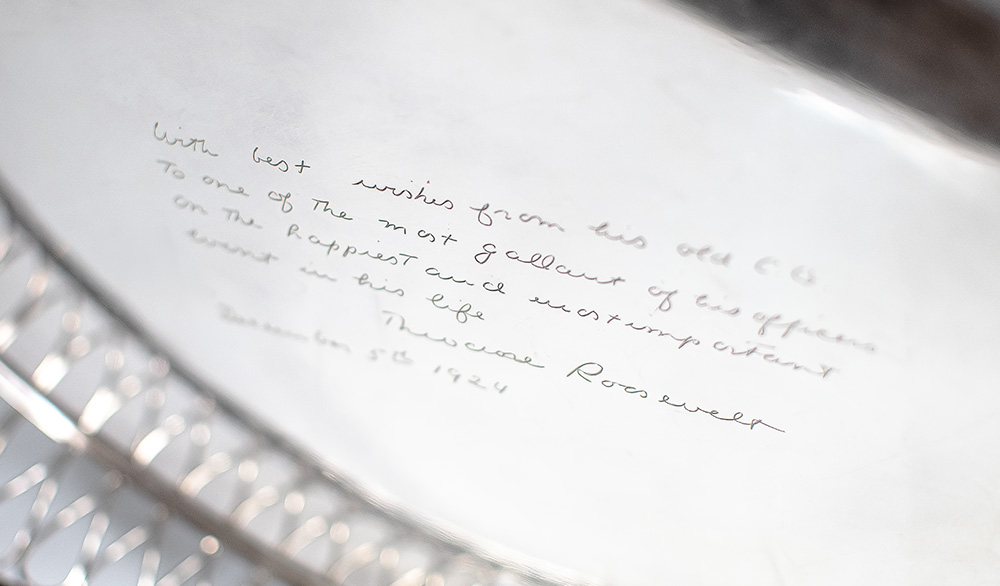 With best wishes from his old C O
To one of the most gallant of his officers
on the happiest and most important
event in his life
Theodore Roosevelt
December 5th 1924